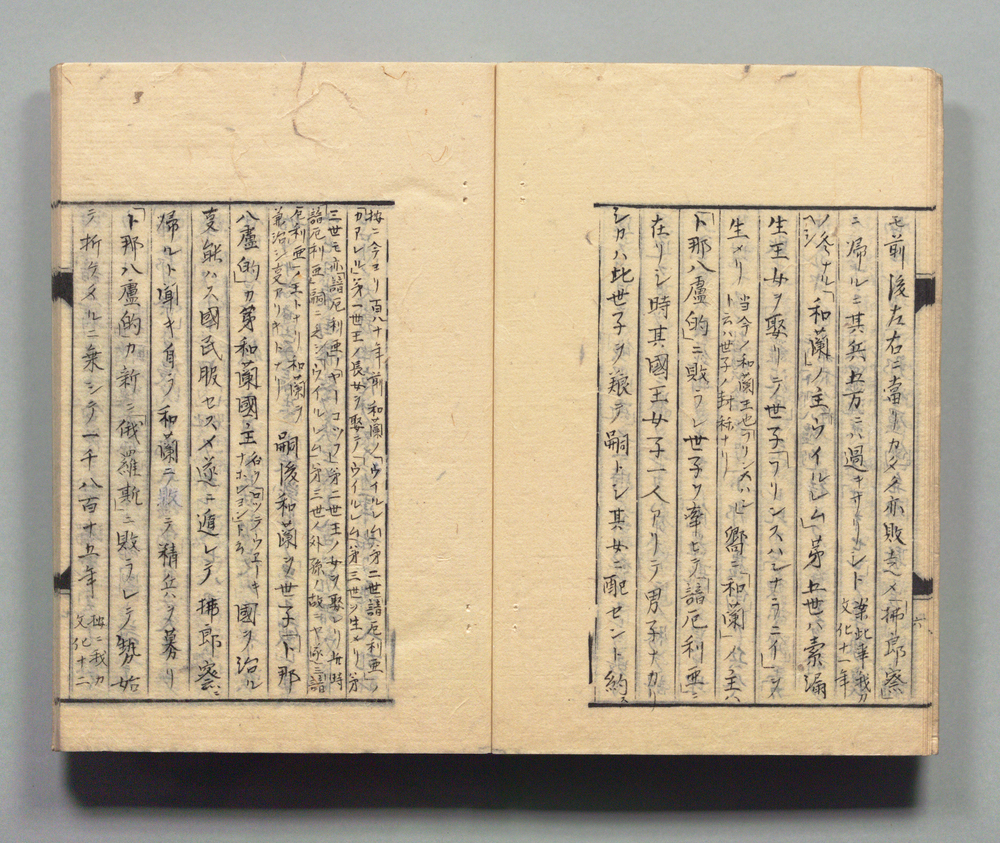 モ前後左右ニ當リカタメ亦敗走メ「拂郎察」
ニ歸ルニ其兵五万ニハ過キサリシト 案此事我カ文化十一年
ノ冬ナル「和蘭」ノ主「ウイルレム」第五世ハ素漏
生王女ヲ娶リテ世子「フリンスハンヲラニイ」ヲ
生メリ 當今ノ和蘭王也フリンスハト云ハ世子ノ封称ナリ 嚮ニ「和蘭」ノ主ハ
ト那八盧的」ニ敗ラレ世子ヲ率ヒテ「諳厄利亜」ニ
在リシ時其國王女子一人アリテ男子ナカリ
シカハ此世子ヲ養テ嗣トシ其女ニ配セント約ス
按ニ今ヨリ百八十年前和蘭ノ「ウイルレム」第二世諳厄利亜ノ
「カアレル」第一世王ノ長女ヲ娶テ「ウイルレム」第三世ヲ生メリ第
三世モ亦「諳厄利亜」ヤーコップ」第二世王ノ女ヲ娶レリ此時
諳厄利亜ニ嗣ニナシ「ウイルレム」第三世ノ外孫ノ故ヲ以テ遂ニ諳
厄利亜ノ王トナリ和蘭ヲ
兼治シ
嗣後和蘭ヲ世子「ト那
八盧的」カ弟和蘭國主 國ヲ治ル
事能ハス國民服セスメ遂ニ遁レテ拂郎察ニ
歸ルト聞キ自ラ和蘭ニ敗テ精兵ヲ募リ
「ト那八盧的」カ新ニ「俄羅斯」ニ敗ラレテ勢始
テ折ケタルニ乗シテ一千八百十五年 按ニ我カ文化十二